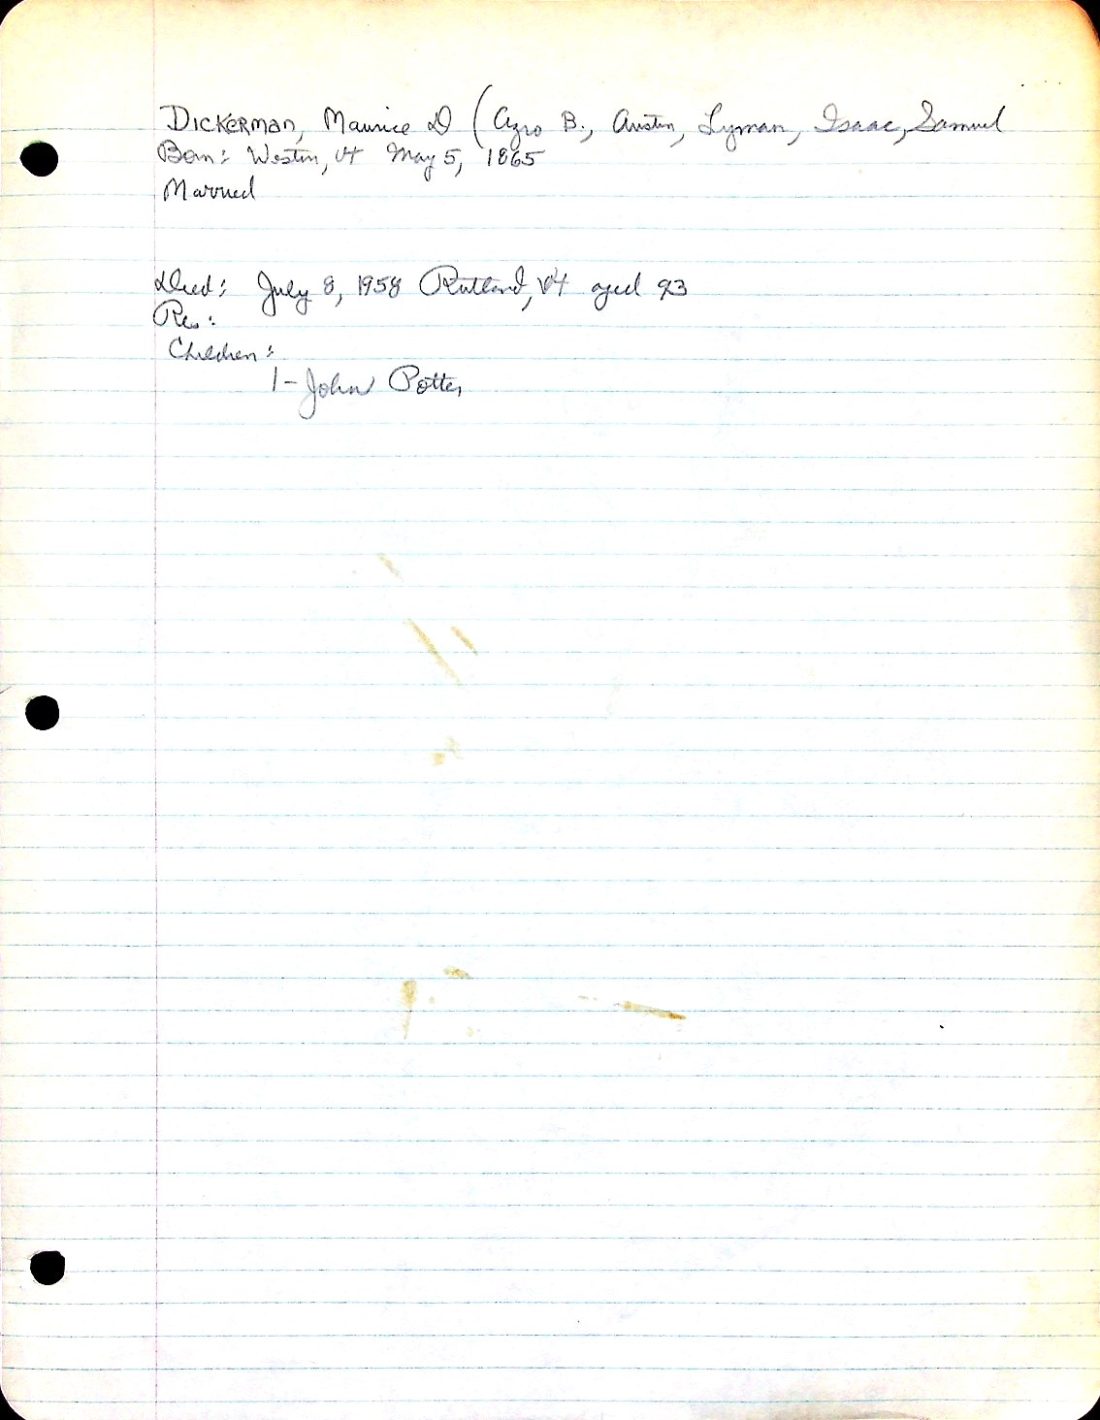 DICKERMAN, Maurice D (Azro B., Austin, Lyman, Isaac, Samuel
Born: Weston, Vt May 5, 1865
Married
Died: July 8, 1958 Rutland, Vt aged 93
Res:
Children:
1- John Potter